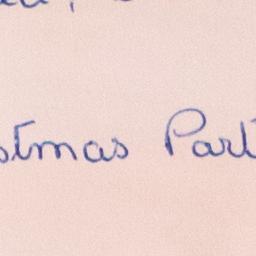 stmas Part